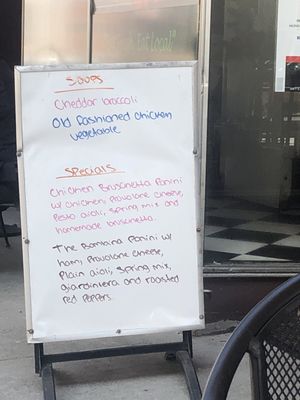 Eat Local
Soups
Cheddar broccoli
Old Fashioned Chicken
vegetable
Specials
Chicken Bruschetta Panini
w/ chicken, Provalone cheese,
Pesto aioli, Spring mix and
homemade bruschetta.
The Bomtana Panini w/
ham, Provalone cheese,
Plain aioli, Spring mix,
giardiniera and roasted
red peppers.